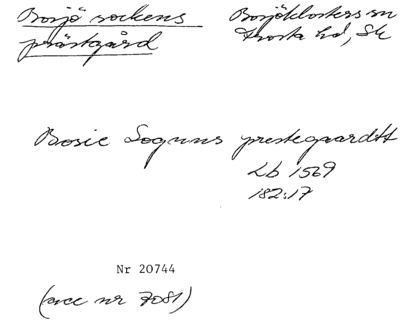 Bosjö sockens Bosjöklosters sn
prästgård Frosta hd, Sk
Bosie Sognns prestegaardtt
Lb 1569
182:17
Nr 20744
(acc nr 7081)